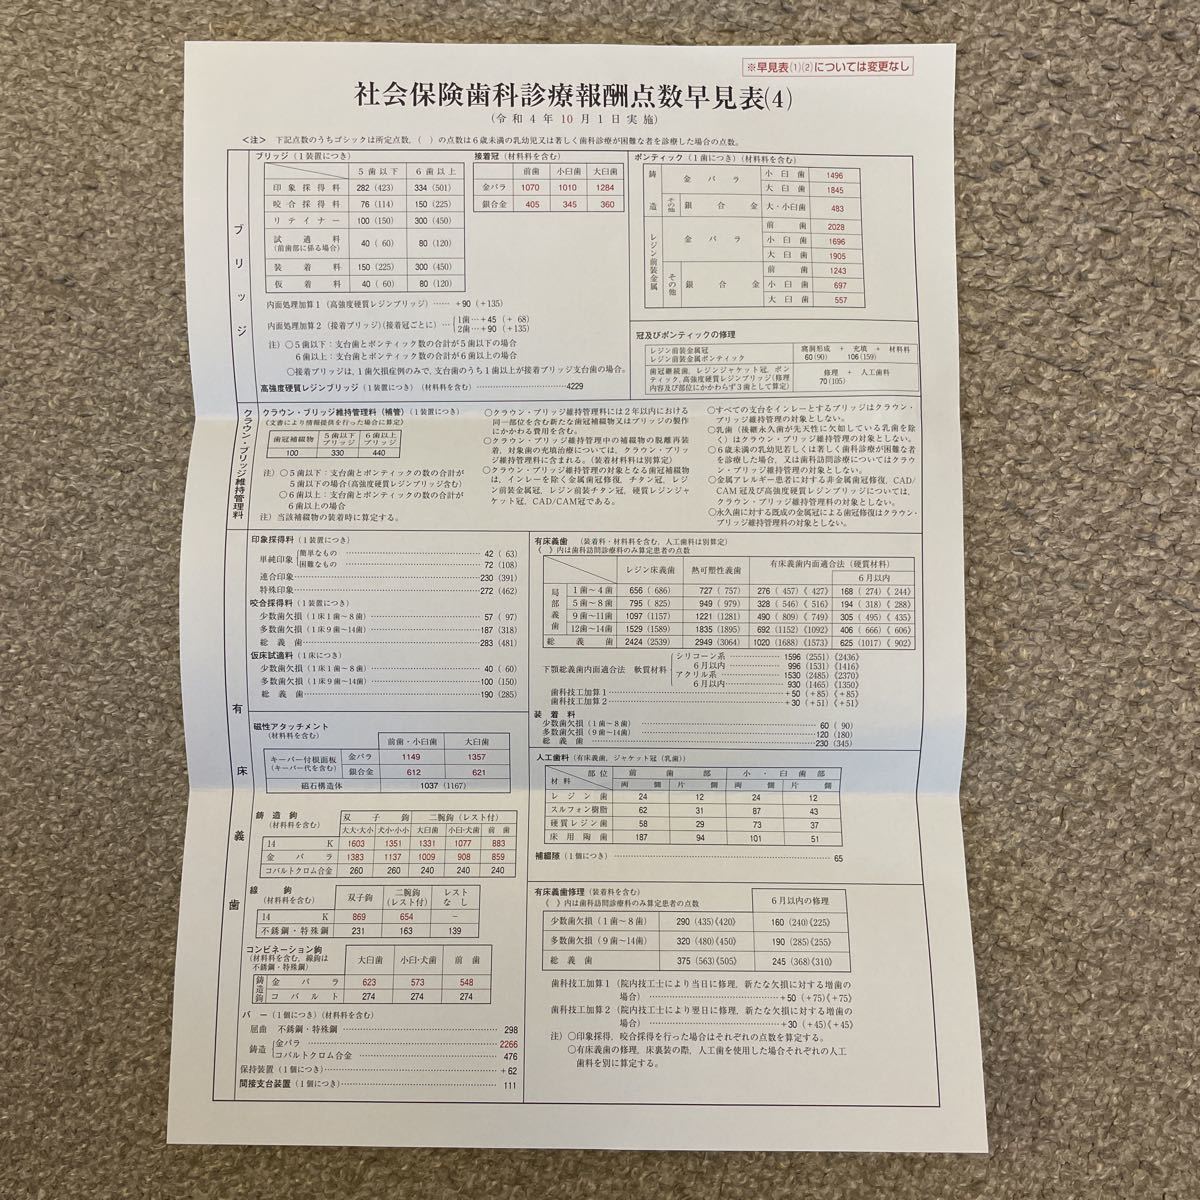 ※早見表(1)(2)については変更なし
社会保険歯科診療報酬点数早見表(4)
(令和4年10月1日実施)
<注> 下記点数のうちゴシックは所定点数,( )の点数は6歳未満の乳幼児又は著しく歯科診療が困難な者を診療した場合の点数。
ブリッジ
ブリッジ(1装置につき)
5歯以下 6歯以上
印象採得料 282 (423) 334 (501)
咬合採得料 76 (114) 150 (225)
リテイナー 100 (150) 300 (450)
試適料 (前歯部に係る場合) 40 ( 60) 80 (120)
装着料 150 (225) 300 (450)
仮着料 40 ( 60) 80 (120)
内面処理加算1 (高強度硬質レジンブリッジ) …… +90 (+135)
内面処理加算2 (接着ブリッジ)(接着冠ごとに) … 1歯…+45 (+ 68)
2歯…+90 (+135)
注) ○5歯以下:支台歯とポンティック数の合計が5歯以下の場合
6歯以上:支台歯とポンティック数の合計が6歯以上の場合
○接着ブリッジは,1歯欠損症例のみで,支台歯のうち1歯以上が接着ブリッジ支台歯の場合。
高強度硬質レジンブリッジ(1装置につき)(材料料を含む) …… 4229
接着冠(材料料を含む)
前歯 小臼歯 大臼歯
金パラ 1070 1010 1284
銀合金 405 345 360
ポンティック(1歯につき)(材料料を含む)
鋳造 金パラ 小臼歯 1496
大臼歯 1845
その他 銀合金 大・小臼歯 483
レジン前装金属 金パラ 前歯 2028
小臼歯 1696
大臼歯 1905
その他 銀合金 前歯 1243
小臼歯 697
大臼歯 557
冠及びポンティックの修理
レジン前装金属冠
レジン前装金属ポンティック
窩洞形成 + 充填 + 材料料
60(90) 106(159)
歯冠継続歯,レジンジャケット冠,ポンティック,高強度硬質レジンブリッジ(修理内容及び部位にかかわらず3歯として算定)
修理 + 人工歯料
70(105)
クラウン・ブリッジ維持管理料
クラウン・ブリッジ維持管理料(補管)(1装置につき)
(文書により情報提供を行った場合に算定)
歯冠補綴物 5歯以下ブリッジ 6歯以上ブリッジ
100 330 440
注)○5歯以下:支台歯とポンティックの数の合計が
5歯以下の場合(高強度硬質レジンブリッジ含む)
○6歯以上:支台歯とポンティックの数の合計が
6歯以上の場合
注)当該補綴物の装着時に算定する。
○クラウン・ブリッジ維持管理料には2年以内における
同一部位を含む新たな歯冠補綴物又はブリッジの製作
にかかわる費用を含む。
○クラウン・ブリッジ維持管理中の補綴物の脱離再装
着,対象歯の充填治療については,クラウン・ブリッ
ジ維持管理料に含まれる。(装着材料料は別算定)
○クラウン・ブリッジ維持管理料の対象となる歯冠補綴物
は,インレーを除く金属歯冠修復,チタン冠,レジ
ン前装金属冠,レジン前装チタン冠,硬質レジンジャ
ケット冠,CAD/CAM冠である。
○すべての支台をインレーとするブリッジはクラウン・
ブリッジ維持管理の対象としない。
○乳歯(後継永久歯が先天性に欠如している乳歯を除
く)はクラウン・ブリッジ維持管理の対象としない。
○6歳未満の乳幼児若しくは著しく歯科診療が困難な者
を診療した場合,又は歯科訪問診療についてはクラウ
ン・ブリッジ維持管理の対象としない。
○金属アレルギー患者に対する非金属歯冠修復,CAD/
CAM冠及び高強度硬質レジンブリッジについては,
クラウン・ブリッジ維持管理の対象としない。
○永久歯に対する既成の金属冠による歯冠修復はクラウン・
ブリッジ維持管理の対象としない。
有床義歯
印象採得料(1装置につき)
単純印象 簡単なもの …… 42 ( 63)
困難なもの …… 72 (108)
連合印象 …… 230 (391)
特殊印象 …… 272 (462)
咬合採得料(1装置につき)
少数歯欠損(1床1歯~8歯) …… 57 ( 97)
多数歯欠損(1床9歯~14歯) …… 187 (318)
総義歯 …… 283 (481)
仮床試適料(1床につき)
少数歯欠損(1床1歯~8歯) …… 40 ( 60)
多数歯欠損(1床9歯~14歯) …… 100 (150)
総義歯 …… 190 (285)
磁性アタッチメント
(材料料を含む)
前歯・小臼歯 大臼歯
キーパー付根面板 (キーパー代を含む) 金パラ 1149 1357
銀合金 612 621
磁石構造体 1037 (1167)
鋳造鉤
(材料料を含む)
双子鉤 二腕鉤(レスト付)
大大・大小 犬小・小小 大臼歯 小臼・犬歯 前歯
14K 1603 1351 1331 1077 883
金パラ 1383 1137 1009 908 859
コバルトクロム合金 260 260 240 240 240
線鉤
(材料料を含む)
双子鉤 二腕鉤(レスト付) レストなし
14K 869 654 −
不銹鋼・特殊鋼 231 163 139
コンビネーション鉤
(材料料を含む,線鉤は
不銹鋼・特殊鋼)
大臼歯 小臼・犬歯 前歯
鋳造鉤 金パラ 623 573 548
コバルト 274 274 274
バー(1個につき)(材料料を含む)
屈曲 不銹鋼・特殊鋼 …… 298
鋳造 金パラ …… 2266
コバルトクロム合金 …… 476
保持装置(1個につき) …… +62
間接支台装置(1個につき) …… 111
有床義歯 (装着料・材料料を含む,人工歯料は別算定)
《 》内は歯科訪問診療料のみ算定患者の点数
レジン床義歯 熱可塑性義歯 有床義歯内面適合法(硬質材料)
6月以内
局部義歯 1歯~4歯 656 ( 686) 727 ( 757) 276 ( 457)《 427》 168 ( 274)《 244》
5歯~8歯 795 ( 825) 949 ( 979) 328 ( 546)《 516》 194 ( 318)《 288》
9歯~11歯 1097 (1157) 1221 (1281) 490 ( 809)《 749》 305 ( 495)《 435》
12歯~14歯 1529 (1589) 1835 (1895) 692 (1152)《1092》 406 ( 666)《 606》
総義歯 2424 (2539) 2949 (3064) 1020 (1688)《1573》 625 (1017)《 902》
下顎総義歯内面適合法 軟質材料 シリコーン系 …… 1596 (2551)《2436》
6月以内 …… 996 (1531)《1416》
アクリル系 …… 1530 (2485)《2370》
6月以内 …… 930 (1465)《1350》
歯科技工加算1 …… +50 (+85)《+85》
歯科技工加算2 …… +30 (+51)《+51》
装着料
少数歯欠損(1歯~8歯) …… 60 ( 90)
多数歯欠損(9歯~14歯) …… 120 (180)
総義歯 …… 230 (345)
人工歯料(有床義歯,ジャケット冠(乳歯))
部位 材料 前歯部 小・臼歯部
両側 片側 両側 片側
レジン歯 24 12 24 12
スルフォン樹脂 62 31 87 43
硬質レジン歯 58 29 73 37
床用陶歯 187 94 101 51
補綴隙(1個につき) …… 65
有床義歯修理(装着料を含む)
《 》内は歯科訪問診療料のみ算定患者の点数
6月以内の修理
少数歯欠損(1歯~8歯) 290 (435)《420》 160 (240)《225》
多数歯欠損(9歯~14歯) 320 (480)《450》 190 (285)《255》
総義歯 375 (563)《505》 245 (368)《310》
歯科技工加算1(院内技工士により当日に修理,新たな欠損に対する増歯の
場合) …… +50 (+75)《+75》
歯科技工加算2(院内技工士により翌日に修理,新たな欠損に対する増歯の
場合) …… +30 (+45)《+45》
注) ○印象採得,咬合採得を行った場合はそれぞれの点数を算定する。
○有床義歯の修理,床裏装の際,人工歯を使用した場合それぞれの人工
歯料を別に算定する。